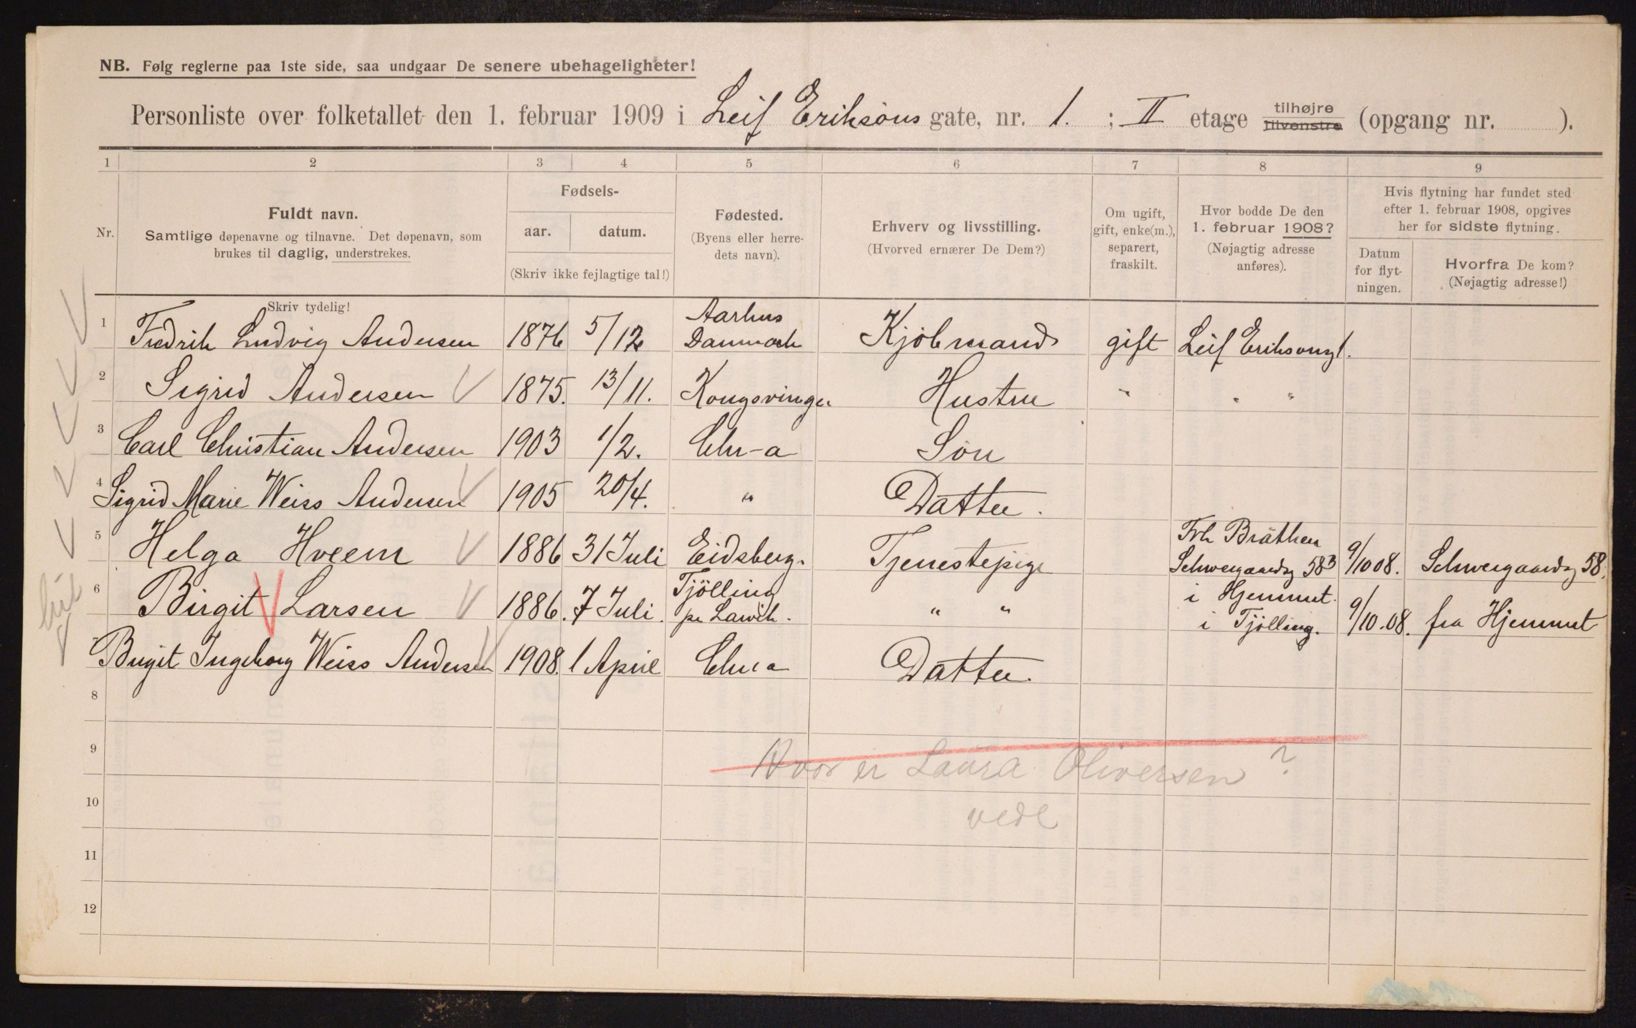 NB. Følg reglerne paa 1ste side, saa undgaar De senere ubehageligheter!
Personliste over folketallet den 1. februar 1909 i Leif Eriksons gate, nr. 1. ; II etage tilhøjre tilvenstre (opgang nr. ).
1 2 3 4 5 6 7 8 9
Nr.
Fuldt navn.
Samtlige døpenavne og tilnavne. Det døpenavn, som
brukes til daglig, understrekes.
Skriv tydelig!
Fødsels-
aar. datum.
(Skriv ikke fejlagtige tal!)
Fødested.
(Byens eller herre-
dets navn).
Erhverv og livsstilling.
(Hvorved ernærer De Dem?)
Om ugift,
gift, enke(m.),
separert,
fraskilt.
Hvor bodde De den
1. februar 1908?
(Nøjagtig adresse
anføres).
Hvis flytning har fundet sted
efter 1. februar 1908, opgives
her for sidste flytning.
Datum
for flyt-
ningen.
Hvorfra De kom?
(Nøjagtig adresse!)
1 Fredrik Ludvig Andersen 1876 5/12 Aarhus Danmark Kjöbmand gift Leif Eriksonsg 1.
2 Sigrid Andersen 1875. 13/11. Kongsvinger Hustru " " "
3 Carl Christian Andersen 1903 1/2. Chr-a Sön
4 Sigrid Marie Weiss Andersen 1905 20/4. " Datter.
5 Helga Hveem 1886 31 Juli Eidsberg. Tjenestepige Frk Bråthen Schweigaardsg 58 3 9/10 08. Schweigaardsg 58.
6 Birgit Larsen 1886. 7 Juli. Tjölling pr Larvik. " " i Hjemmet. i Tjölling. 9/10.08. fra Hjemmet
7 Birgit Ingeborg Weiss Andersen 1908. 1 April Chr a Datter.
8
9 Hvor er Laura Oliversen ?
10
11
12